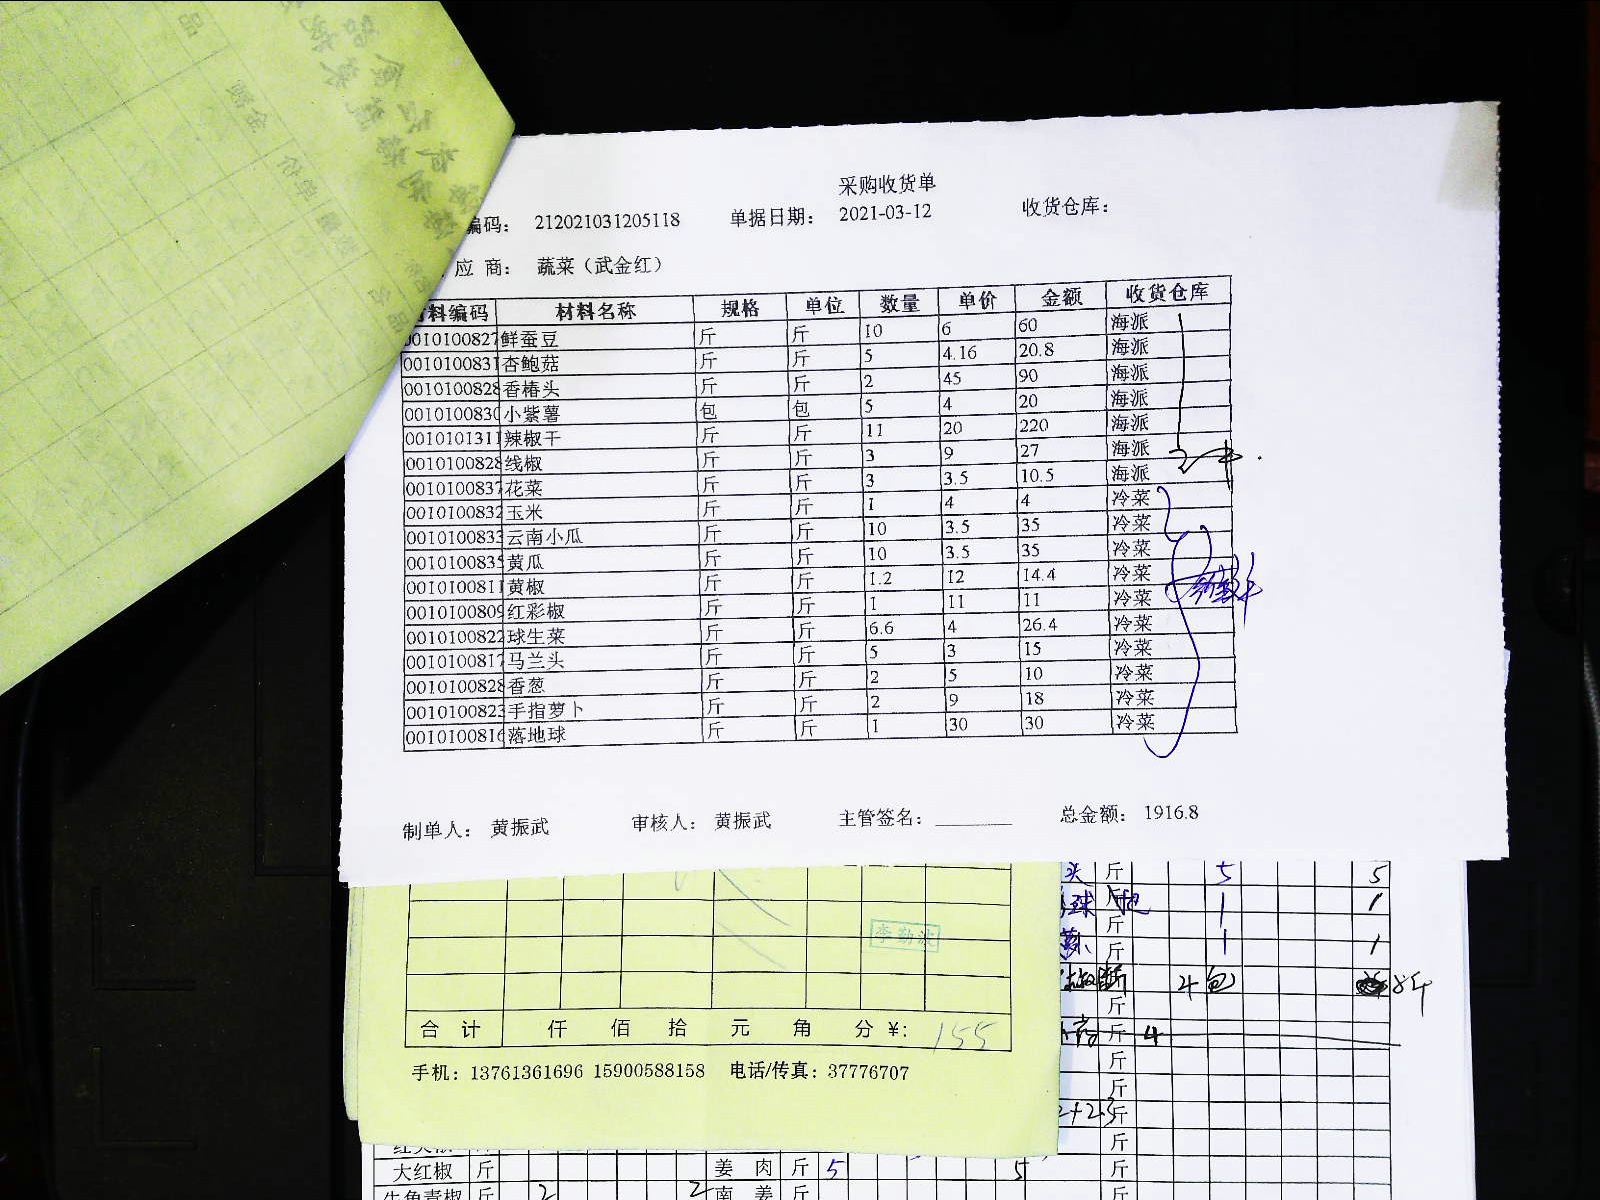 采购收货单
编码： 212021031205118 单据日期： 2021-03-12 收货仓库：
应 商： 蔬菜（武金红）
料编码 材料名称 规格 单位 数量 单价 金额 收货仓库
0010100827 鲜蚕豆 斤 斤 10 6 60 海派
0010100831 杏鲍菇 斤 斤 5 4.16 20.8 海派
0010100828 香椿头 斤 斤 2 45 90 海派
0010100830 小紫薯 包 包 5 4 20 海派
0010101311 辣椒干 斤 斤 11 20 220 海派
0010100828 线椒 斤 斤 3 9 27 海派
0010100837 花菜 斤 斤 3 3.5 10.5 海派
0010100832 玉米 斤 斤 1 4 4 冷菜
0010100833 云南小瓜 斤 斤 10 3.5 35 冷菜
0010100835 黄瓜 斤 斤 10 3.5 35 冷菜
0010100811 黄椒 斤 斤 1.2 12 14.4 冷菜
0010100809 红彩椒 斤 斤 1 11 11 冷菜
0010100822 球生菜 斤 斤 6.6 4 26.4 冷菜
0010100817 马兰头 斤 斤 5 3 15 冷菜
0010100828 香葱 斤 斤 2 5 10 冷菜
0010100823 手指萝卜 斤 斤 2 9 18 冷菜
0010100816 落地球 斤 斤 1 30 30 冷菜
制单人： 黄振武 审核人： 黄振武 主管签名： 总金额： 1916.8
头 斤 5 5
球 斤 1 1
斤 1 1
4包 8斤
斤
斤 4
斤
斤
2+2.3斤
斤
李勤波
合 计 仟 佰 拾 元 角 分 ¥: 155
手机：13761361696 15900588158 电话/传真：37776707
大红椒 斤 姜 肉 斤 5 5 斤
牛角青椒 斤 2 2 南 姜 斤 斤